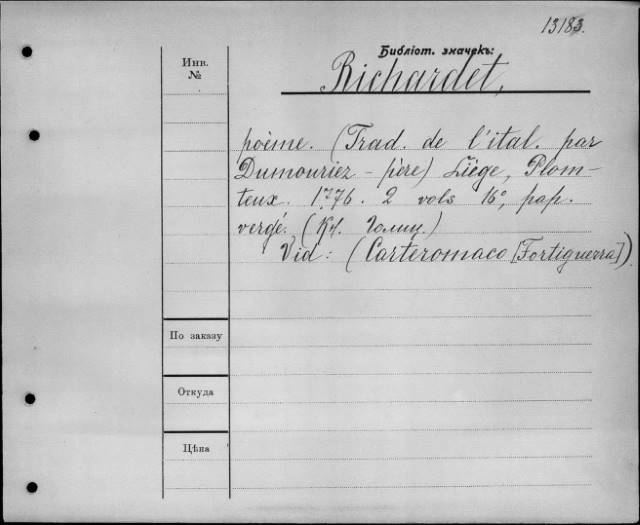 13183.
Библіот. значекъ:
Инв.
№
Richardet,
poème. (Trad. de l'ital. par
Dumouriez - père) Liège, Plom-
teux. 1776. 2 vols 16°, pap.
vergé. (Кн. Голиц.)
Vid: (Carteromaco [Fortiguerra])
По заказу
Откуда
Цѣна